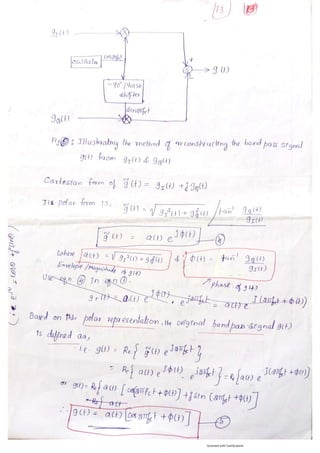 13
g_I(t)
cos2πfct
oscillator
+
Σ → g(t)
-90° phase shifter
sin2πfct
g_Q(t)
: Illustrating the method of reconstructing the band pass signal
g(t) from g_I(t) & g_Q(t)
Cartesian form of g̃(t) = g_I(t) + j g_Q(t)
Its polar form is, g̃(t) = √(g_I²(t) + g_Q²(t)) / tan⁻¹ g_Q(t)/g_I(t)
g̃(t) = a(t) e^{jϕ(t)} ④
where a(t) = √(g_I²(t) + g_Q²(t)) & ϕ(t) = tan⁻¹ g_Q(t)/g_I(t)
Envelope/Magnitude of g(t)
phase of g(t)
Use eqn ④ in eqn ①.
g₊(t) = a(t) e^{jϕ(t)} . e^{j2πfct} = a(t) e^{j(2πfct + ϕ(t))}
Based on this polar representation, the original bandpass signal g(t)
is defined as,
i.e g(t) = Re{ g̃(t) e^{j2πfct} }
= Re{ a(t) e^{jϕ(t)} . e^{j2πfct} } = Re{ a(t) e^{j(2πfct + ϕ(t))} }
or g(t) = Re{ a(t) [cos[2πfct + ϕ(t)] + j sin [2πfct + ϕ(t)]
Re{ a(t)
∴ g(t) = a(t) [cos[2πfct + ϕ(t)] ⑤
Scanned with CamScanner